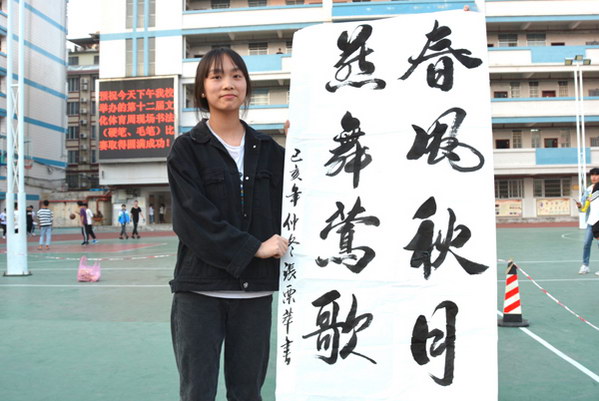 预祝今天下午我校
举办的第十二届文
化体育周现场书法
（硬笔、毛笔）比
赛取得圆满成功！
春風秋月
燕舞莺歌
己亥年仲冬張栗華書